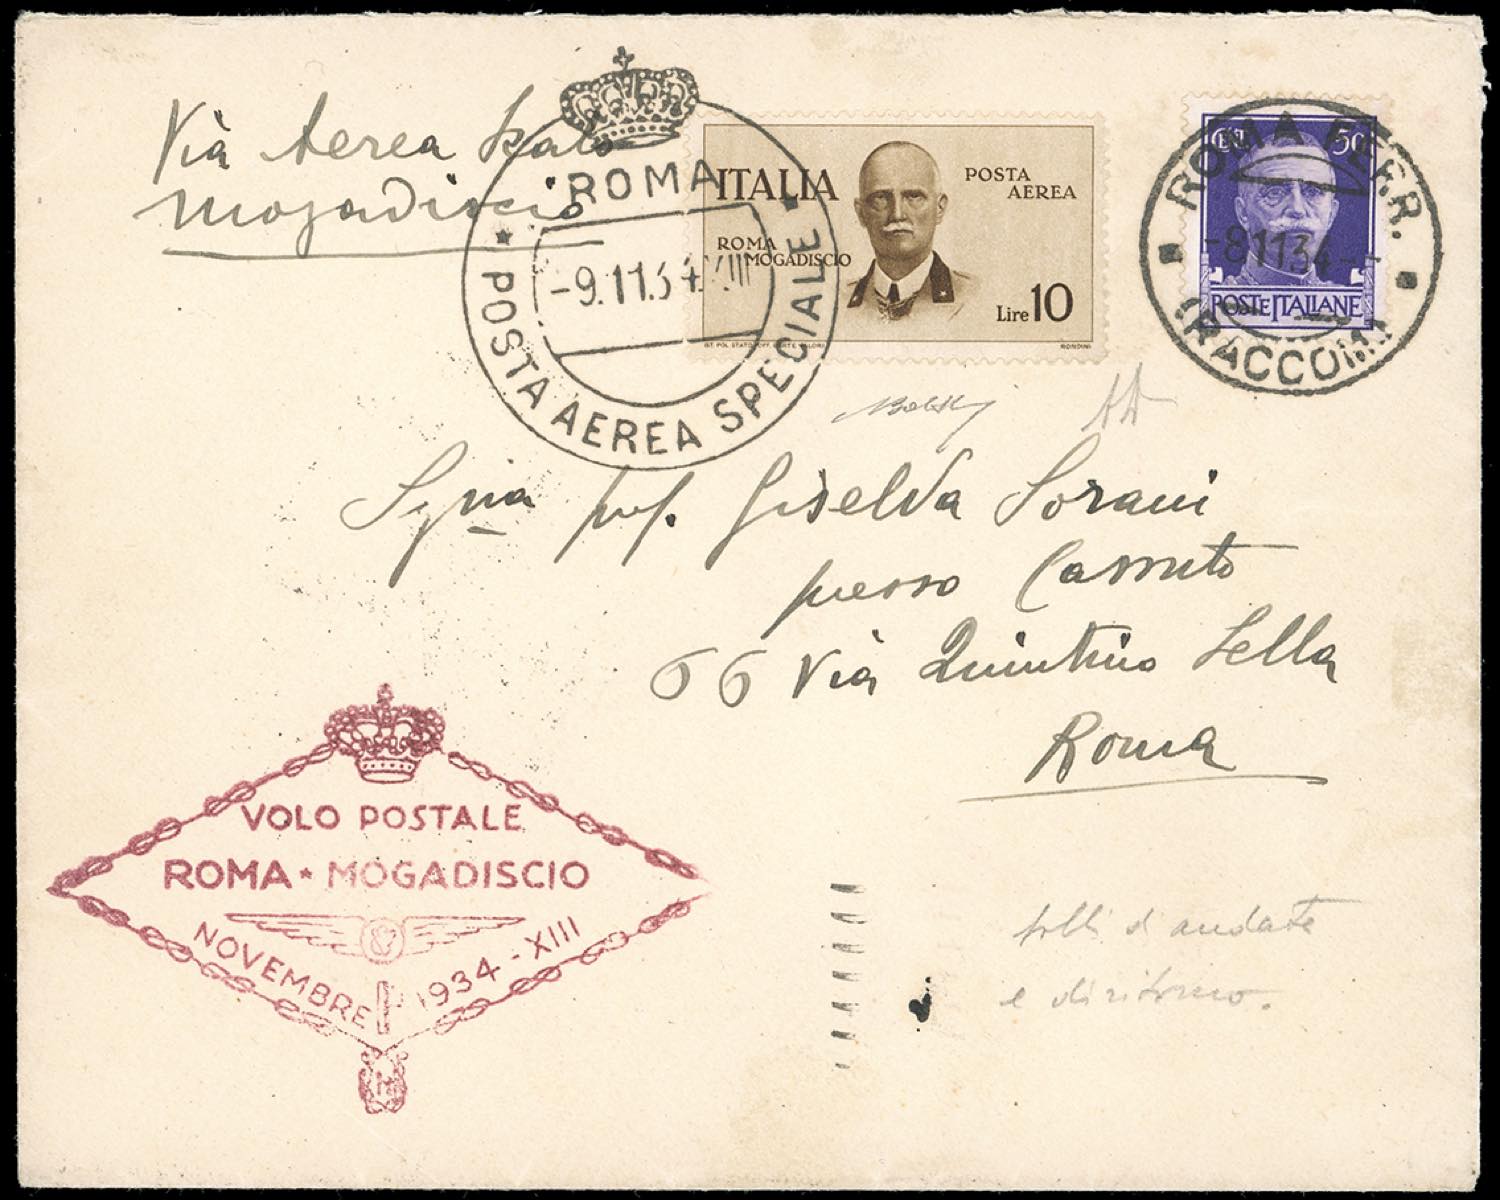 Via Aerea
Mogadiscio
ROMA
-9.11.34.XIII
* POSTA AEREA SPECIALE *
ITALIA
POSTA
AEREA
ROMA
MOGADISCIO
Lire 10
IST. POL. STATO. OFF. CARTE VALORI
MONDINI
CENT. 50
POSTE ITALIANE
ROMA FERR.
-8.11.34--
(RACCOM.)
Sigria prof. Giselda Sorani
presso Cassuto
66 Via Quintino Sella
Roma
VOLO POSTALE
ROMA * MOGADISCIO
NOVEMBRE 1934 - XIII
bolli d'andata
e di ritorno.